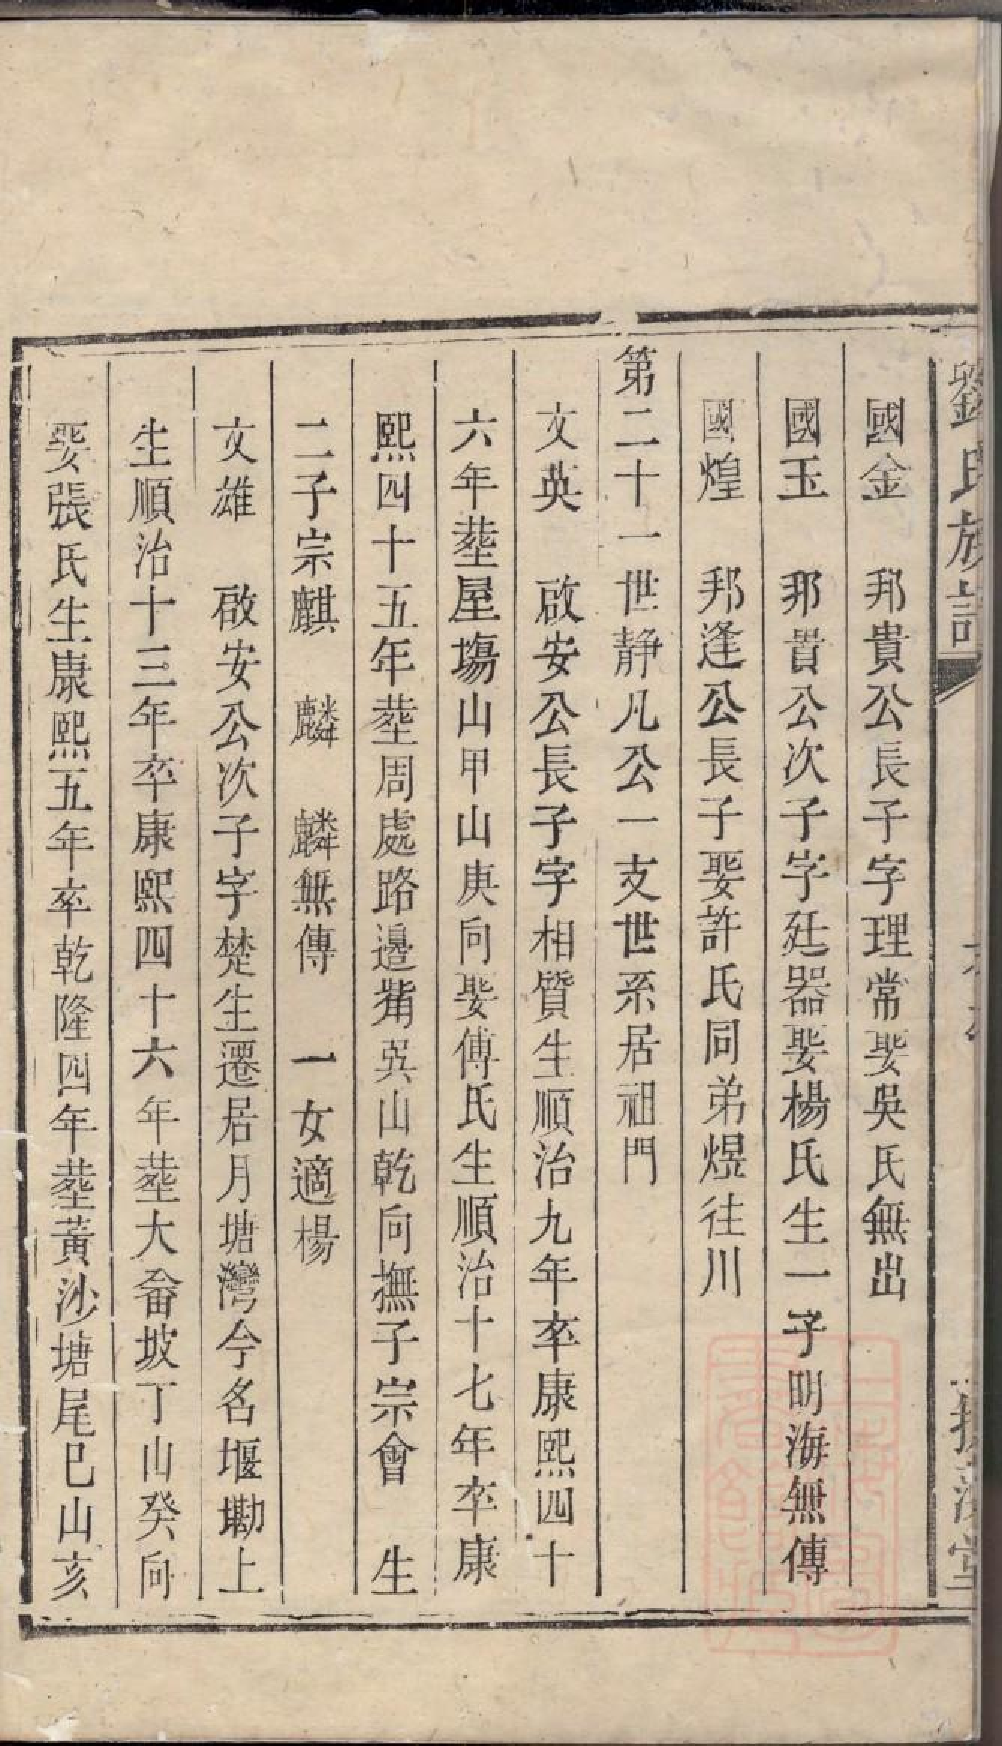 劉氏族譜
國金　邦貴公長子字理常娶吳氏無出
國玉　邦貴公次子字廷器娶楊氏生一子明海無傳
國煌　邦逢公長子娶許氏同弟煜往川
第二十一世靜凡公一支世系居祖門
文英　啟安公長子字相質生順治九年卒康熙四十
六年塟屋塲山甲山庚向娶傅氏生順治十七年卒康
熙四十五年塟周處路邊觜巽山乾向撫子宗會　生
二子宗麒　麟　麟無傳　一女適楊
文雄　啟安公次子字楚生遷居月塘灣今名堰墈上
生順治十三年卒康熙四十六年塟大畬坡丁山癸向
娶張氏生康熙五年卒乾隆四年塟黃沙塘尾巳山亥